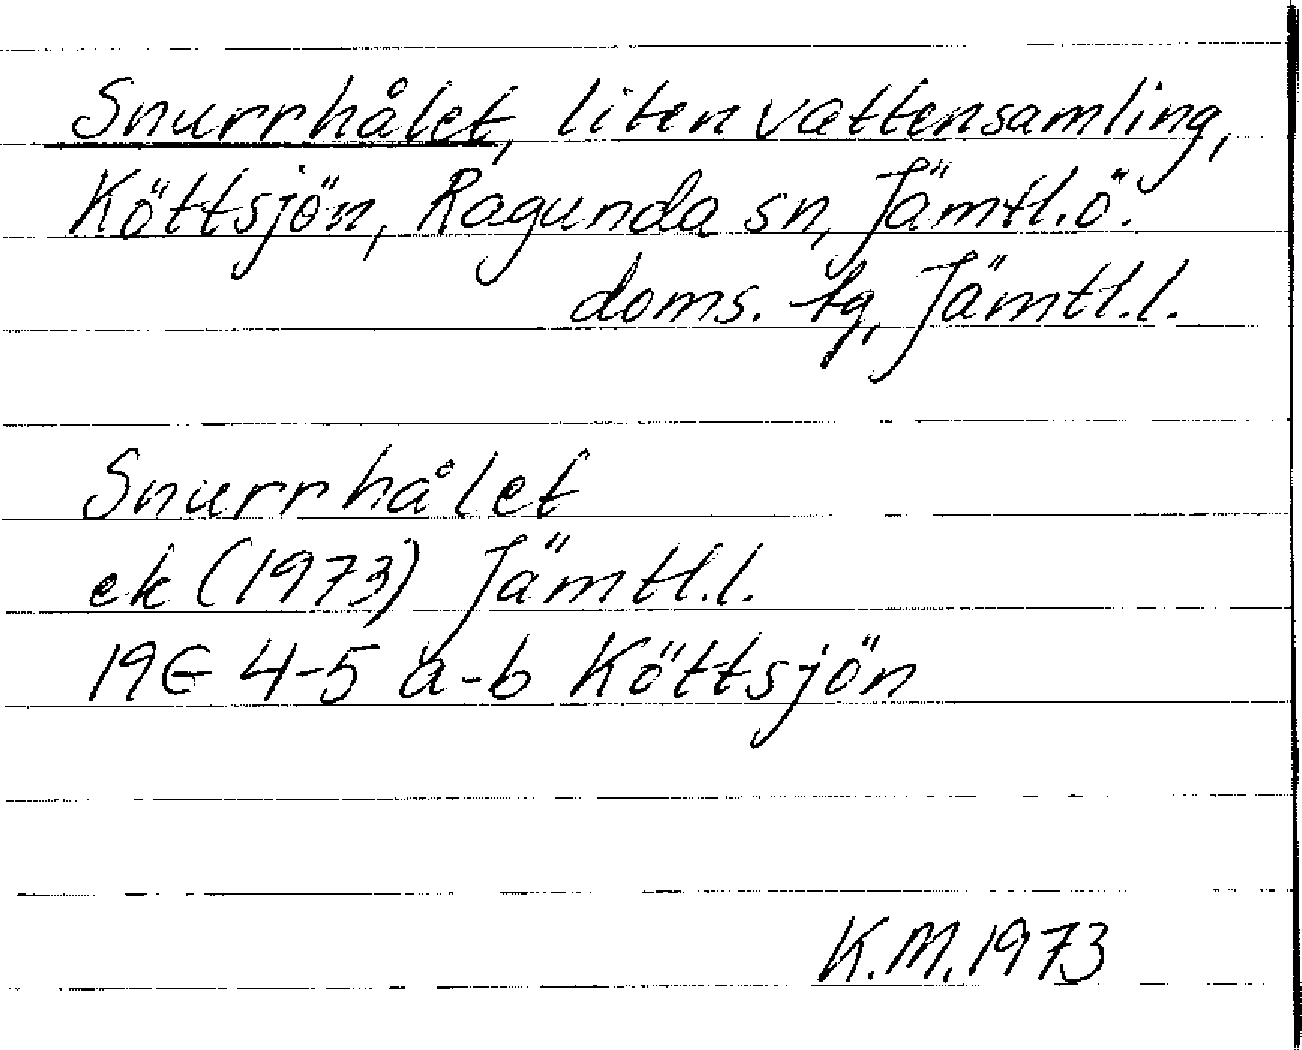 Snurrhålet, liten vattensamling,
Köttsjön, Ragunda sn, Jämtl.ö.
doms. tg, Jämtl.l.
Snurrhålet
ek (1973) Jämtl.l.
19E 4-5 a-b Köttsjön
K.M. 1973